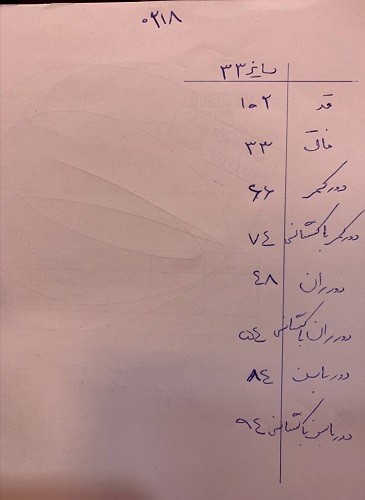 ۰۲۱۸
سایز ۳۳
قد ۱۰۲
فاق ۳۳
دور کمر ۶۶
دور کمر با کشسانی ۷۴
دور ران ۴۸
دور ران با کشسانی ۵۴
دور باسن ۸۴
دور باسن با کشسانی ۹۴